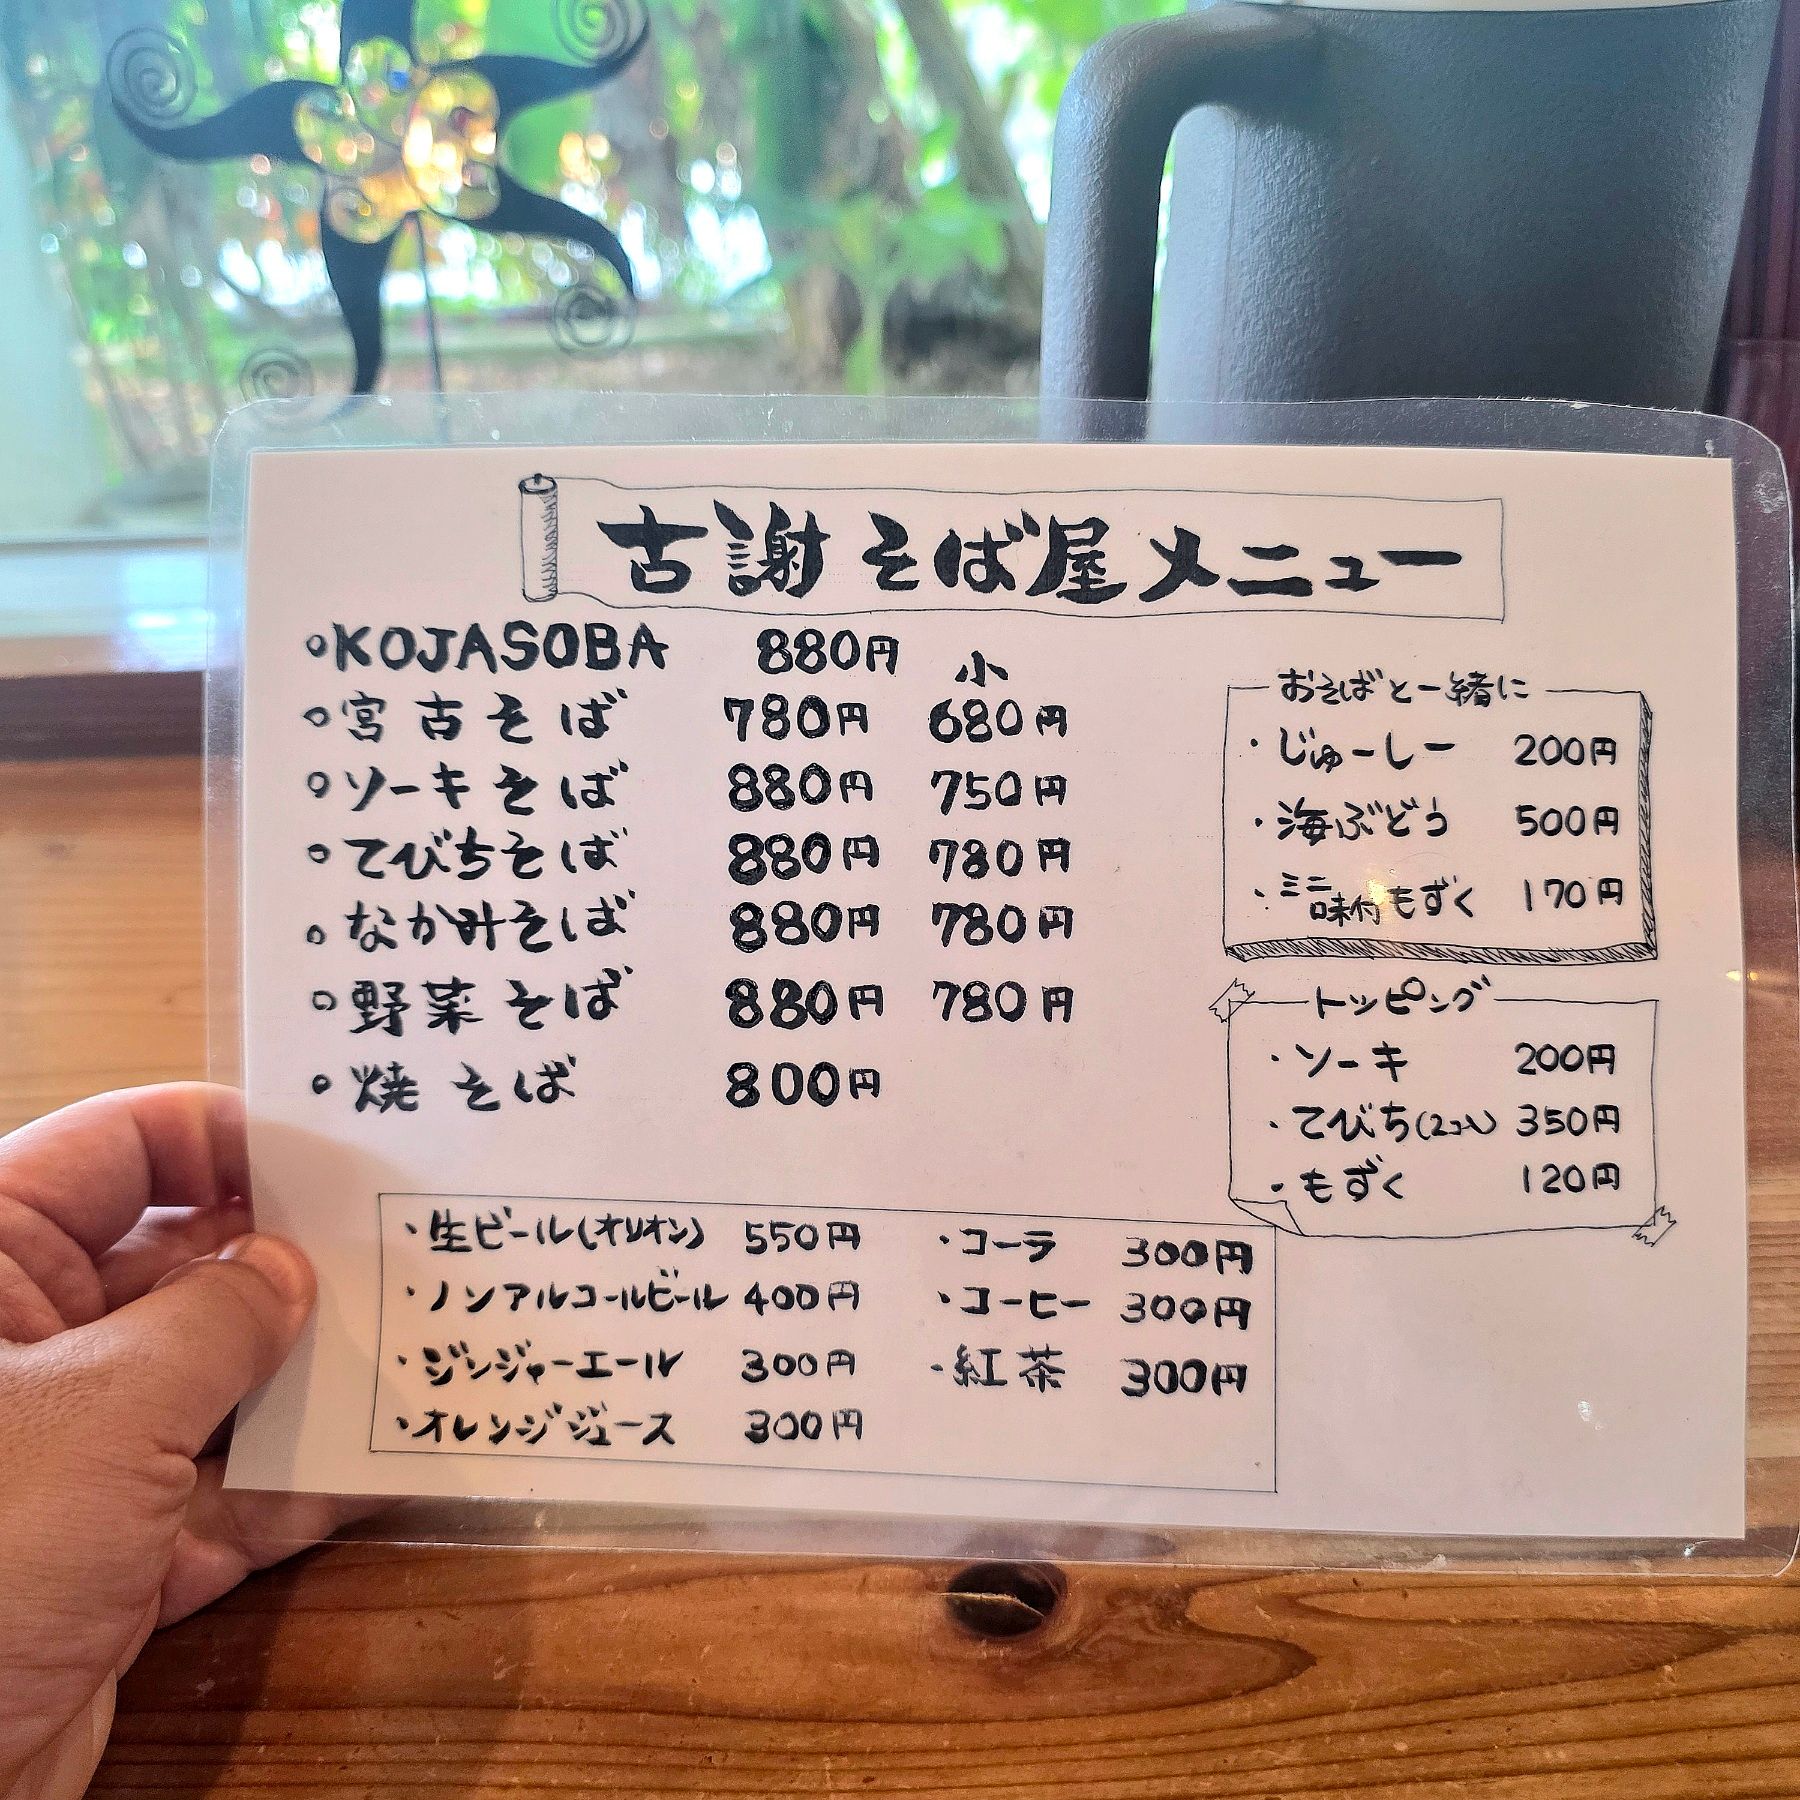 古謝そば屋メニュー
小
◦KOJASOBA 880円
◦宮古そば 780円 680円
◦ソーキそば 880円 750円
◦てびちそば 880円 780円
◦なかみそば 880円 780円
◦野菜そば 880円 780円
◦焼そば 800円
おそばと一緒に
・じゅーしー 200円
・海ぶどう 500円
・ミニ味付もずく 170円
トッピング
・ソーキ 200円
・てびち(2コ入) 350円
・もずく 120円
・生ビール(オリオン) 550円
・ノンアルコールビール 400円
・ジンジャーエール 300円
・オレンジジュース 300円
・コーラ 300円
・コーヒー 300円
・紅茶 300円